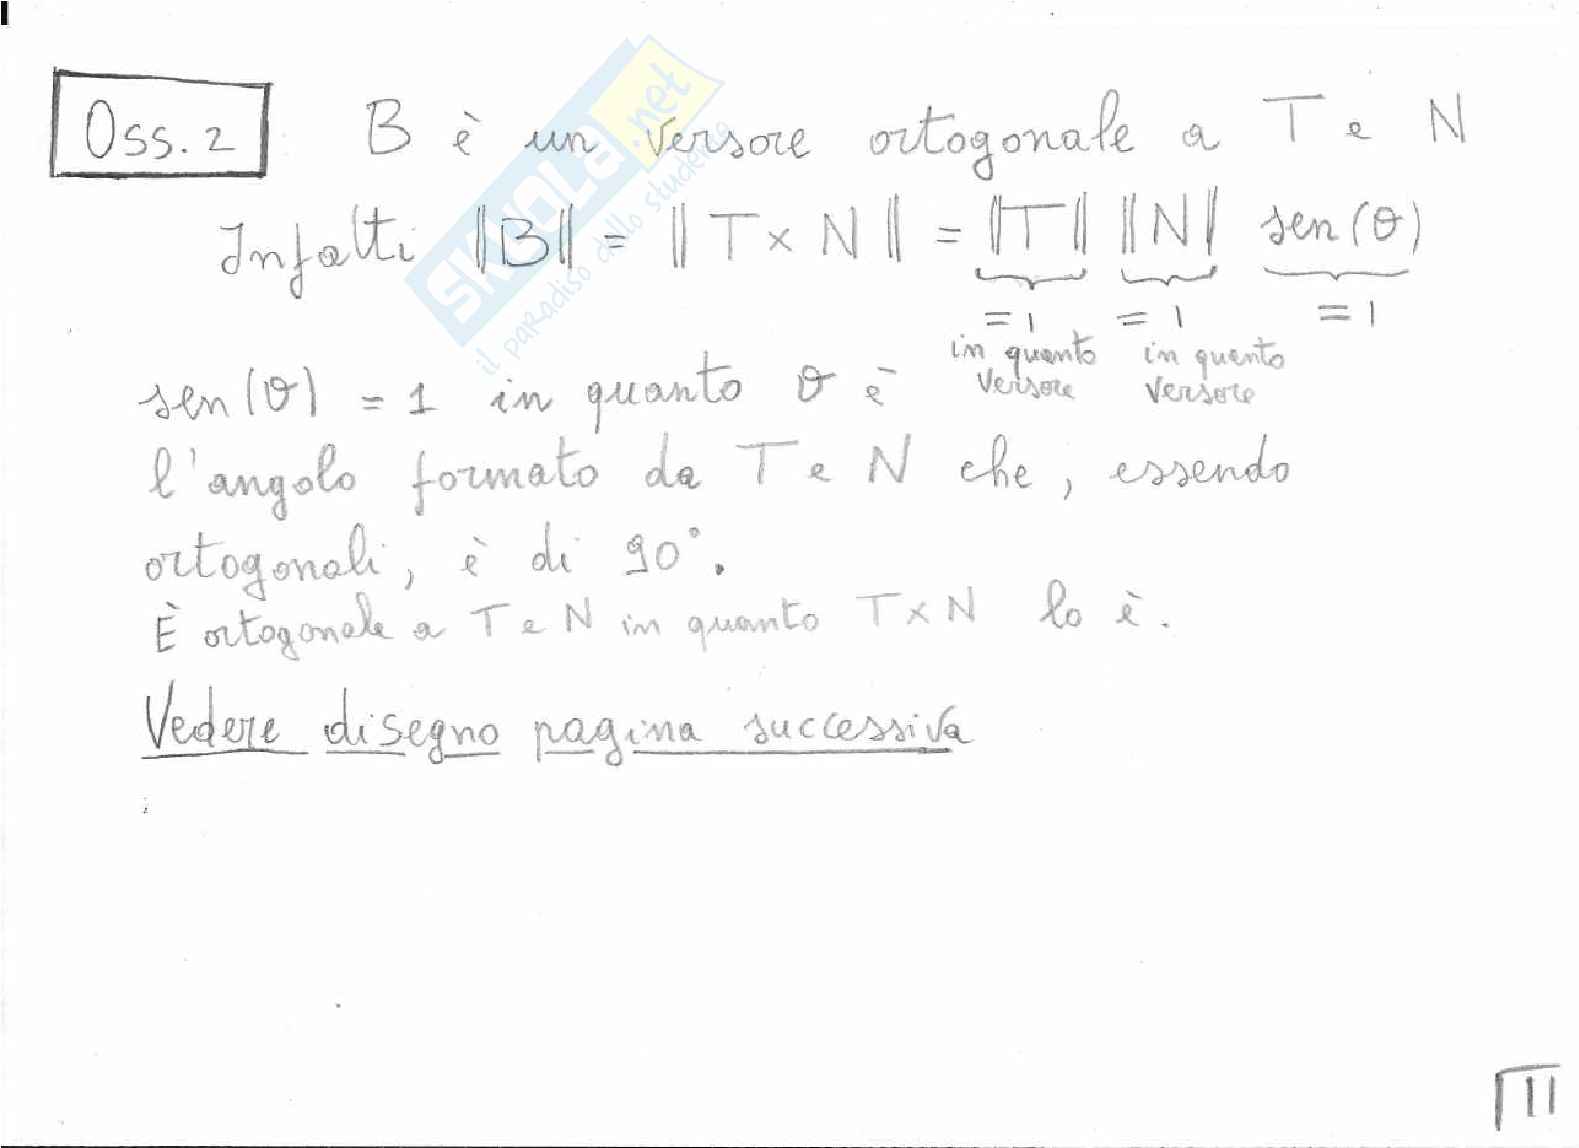 Oss. 2 B è un versore ortogonale a T e N
Infatti ||B|| = || T × N || = ||T|| ||N|| sen(θ)
= 1 = 1 = 1
in quanto in quanto
versore versore
sen(θ) = 1 in quanto θ è
l'angolo formato da T e N che, essendo
ortogonali, è di 90°.
È ortogonale a T e N in quanto T × N lo è.
Vedere disegno pagina successiva
11
SKUOLA.net
il paradiso dello studente